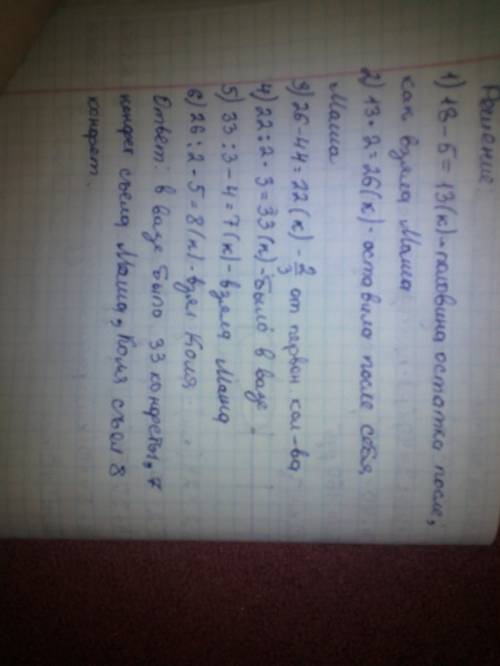 Решение
1) 18-5=13(к)-половина остатка после,
как взяла Маша
2) 13·2=26(к)-оставила после себя
Маша
3) 26-44=22(к)-2/3 от первон кол-ва
4) 22:2·3=33(к)-было в вазе
5) 33:3-4=7(к)-взяла Маша
6) 26:2-5=8(к)-взял Коля
Ответ: в вазе было 33 конфеты, 7
конфет съела Маша, Коля съел 8
конфет.